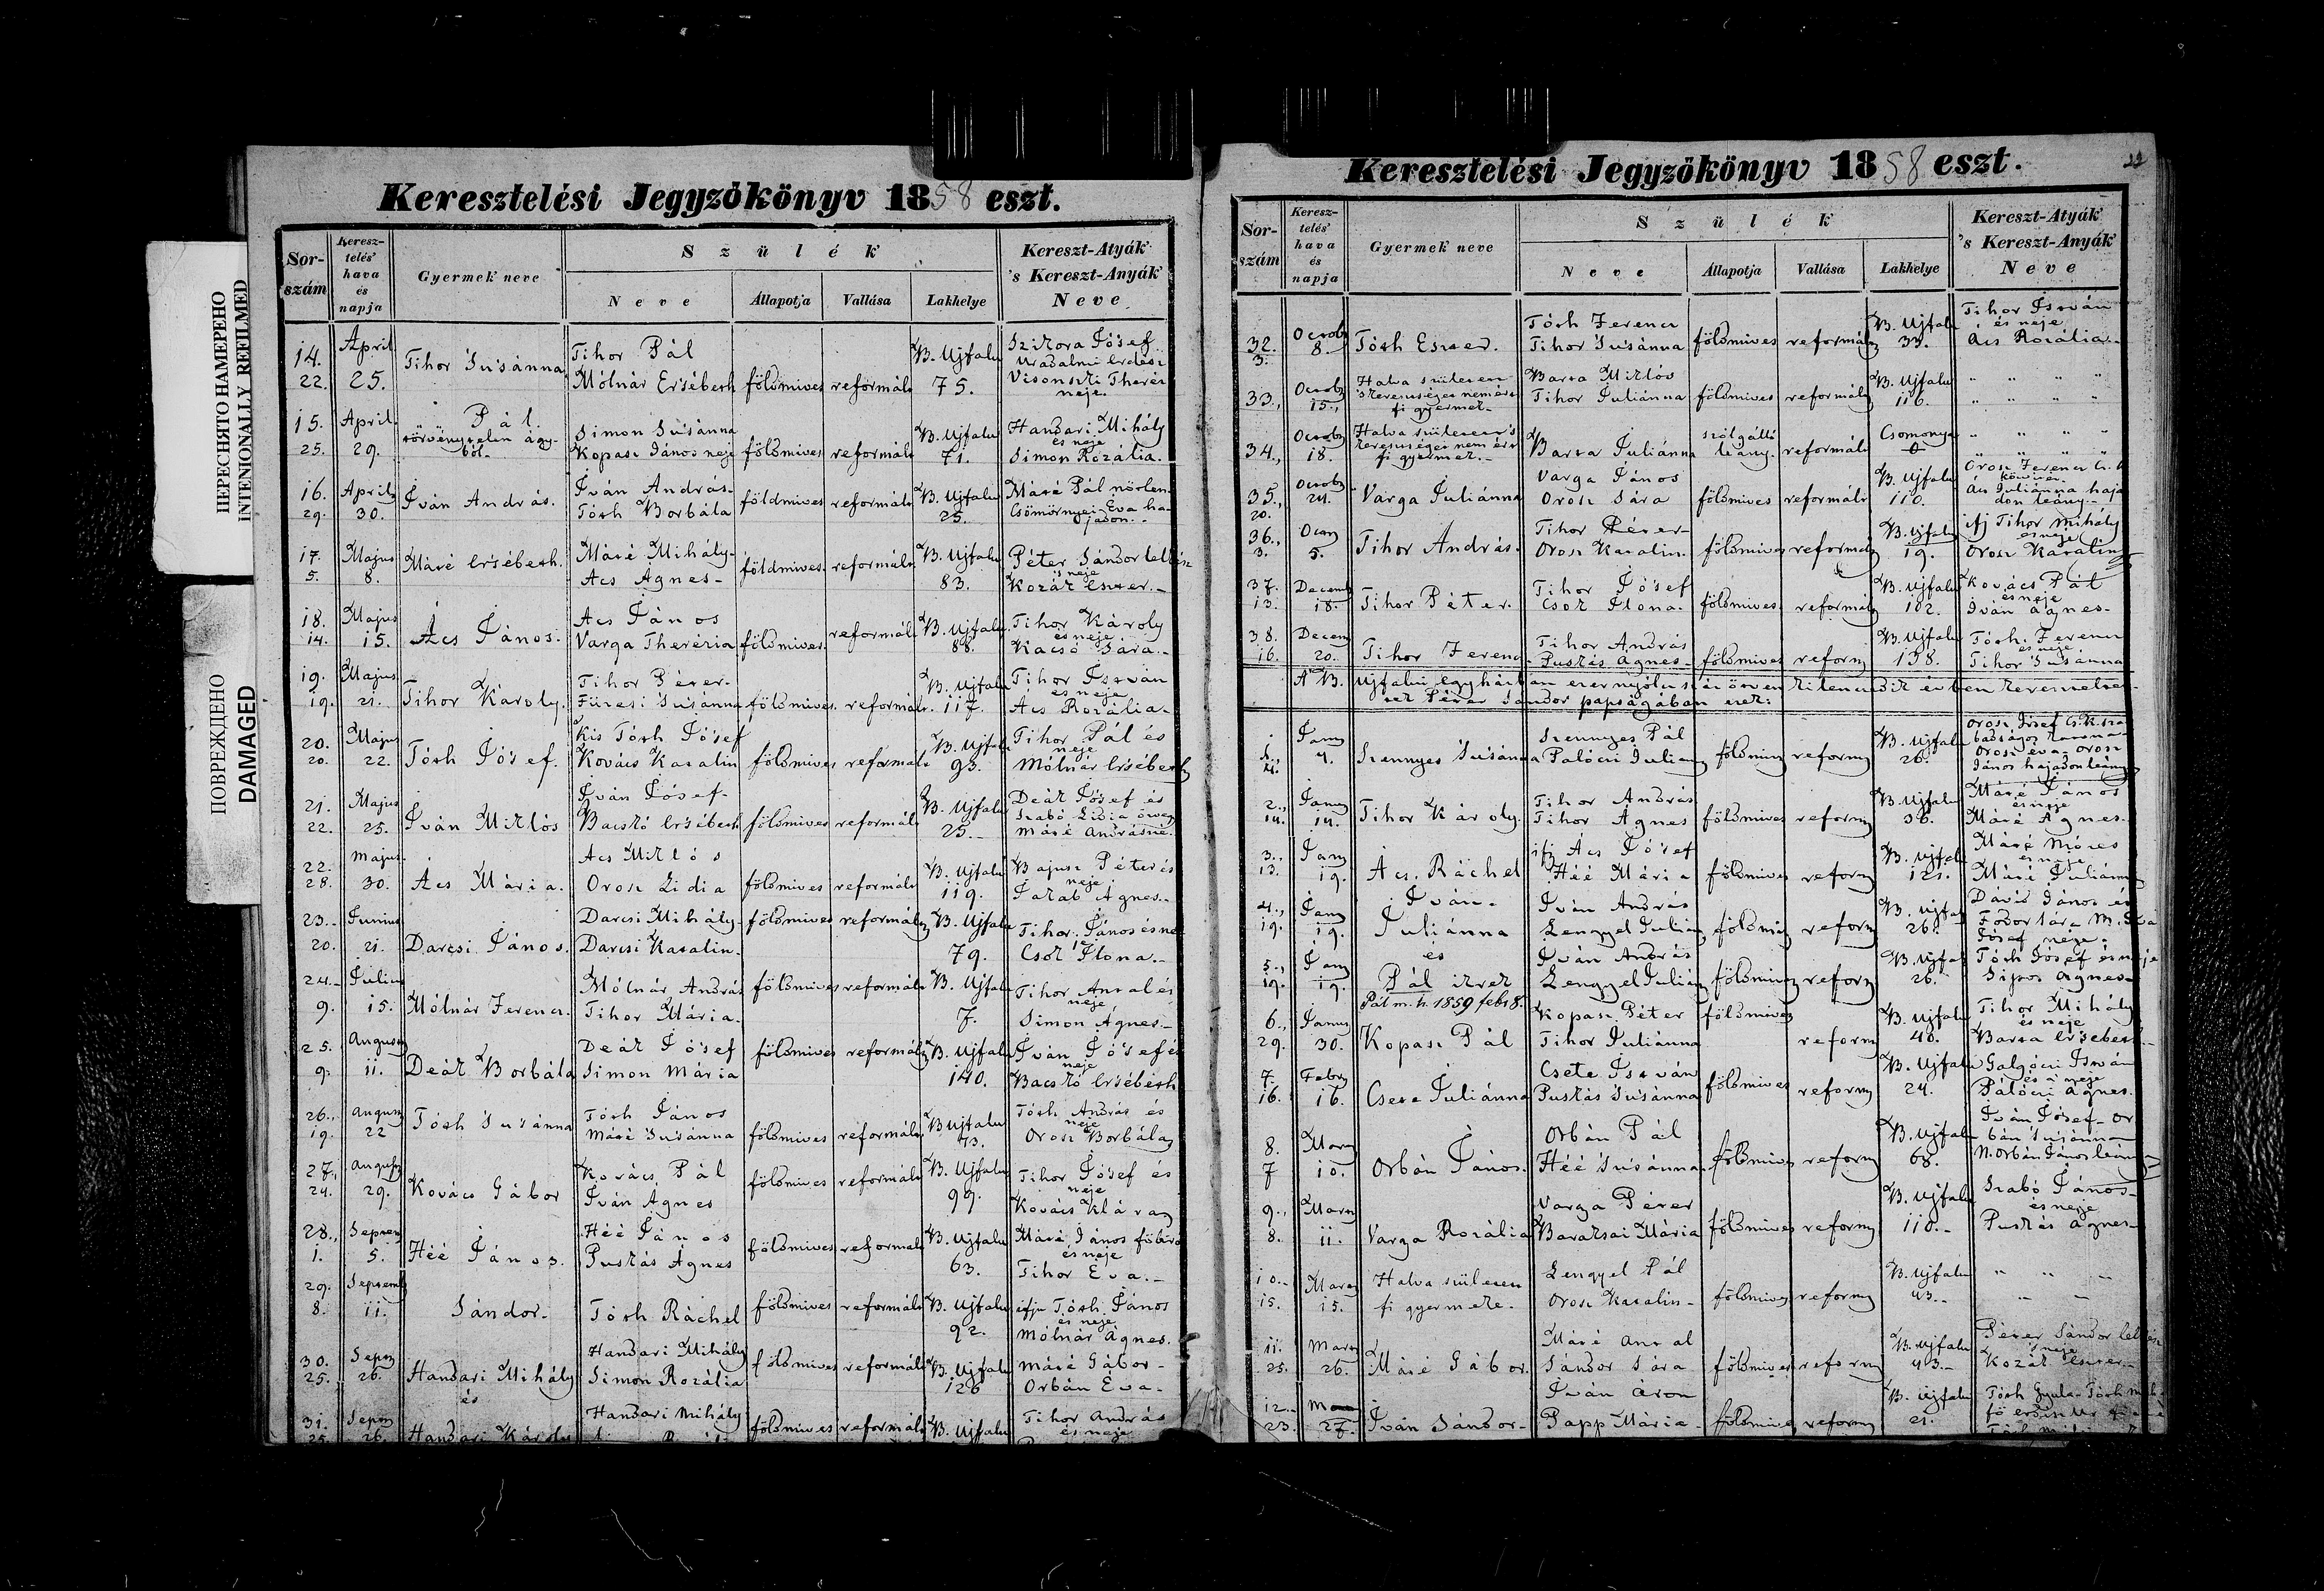 ПЕРЕСНЯТО НАМЕРЕНО
INTENIONALLY REFILMED
ПОВРЕЖДЕНО
DAMAGED
Keresztelési Jegyzőkönyv 1858 eszt.
Sor-szám
Keresz-telés' hava és napja
Gyermek neve
Szülék
Neve
Állapotja
Vallása
Lakhelye
Kereszt-Atyák 's Kereszt-Anyák Neve
14. April Tihor Pál Szikora Jósef
22. 25. Tihor Susánna Mólnár Ersébeth földmives reformált B. Ujfalu 75. neje.
15. April Pál Simon Susánna Handari Mihály
25. 29. törvénytelen ágy-ból Kopasz János neje földmives reformált B. Ujfalu 71. és neje Simon Rozália.
16. April Iván András. Iván András Máré Pál nőtlen
29. 30. Tóth Borbála földmives reformált B. Ujfalu 25. Csömörnyei Éva ha-jadon.
17. Majus Máré Ersébeth. Máré Mihály Péter Sándor lelkész
5. 8. Acs Ágnes földmives reformált B. Ujfalu 83. 's neje Kozák Eszter.
18. Majus Acs János Tihor Károly
14. 15. Ács János. Varga Therézia földmives reformált B. Ujfalu 88. és neje Kacsó Sára.
19. Majus Tihor Péter Tihor István
19. 21. Tihor Károly. Füzesi Susánna földmives reformált B. Ujfalu 117. és neje Acs Rozália
20. Majus Kis Tóth Jósef Tihor Pál és
20. 22. Tóth Jósef. Kovács Katalin földmives reformált B. Ujfalu 93. neje Mólnár Ersébeth
21. Majus Iván Jósef Deák Jósef és
22. 25. Iván Miklós Bacskó Ersébeth földmives reformált B. Ujfalu 25. Szabó Lidia özvegy Máré Andrásné.
22. Majus Acs Miklós Bajusz Péter és
28. 30. Ács Mária. Orosz Lidia földmives reformált B. Ujfalu 119. neje Jakab Ágnes.
23. Junius Darcsi Mihály földmives reformált B. Ujfalu Tihor János és ne
20. 21. Darcsi János. Darcsi Katalin. 79. Csok Ilona.
24. Julius Mólnár András földmives reformált B. Ujfalu Tihor Antal és
9. 15. Mólnár Ferencz. Tihor Mária. 7. neje Simon Ágnes.
25. August Deák Jósef földmives reformált B. Ujfalu Iván Jósef és
9. 11. Deák Borbála Simon Mária 140. neje Bacskó Ersébeth
26. August Tóth Susánna Tóth János Tóth András és
19. 22 Máré Susánna földmives reformált B. Ujfalu 73. neje Orosz Borbála
27. August Kovács Pál földmives reformált B. Ujfalu Tihor Jósef és
24. 29. Kovács Gábor Iván Ágnes 99. neje Kovács Klára
28. Septem Héé János földmives reformált B. Ujfalu Máré János főbiró
1. 5. Héé János. Puskás Ágnes 63. és neje Tihor Éva.
29. Septemb földmives reformált B. Ujfalu ifju Tóth János
8. 11. Sándor. Tóth Ráchel 92. és neje Mólnár Ágnes.
30. Sept Handari Mihály földmives reformált B. Ujfalu Máré Gábor
25. 26. Handari Mihály Simon Rozália 126 Orbán Éva.
és
31. Sept Handari Mihály földmives reformált B. Ujfalu Tihor András
25. 26. Handari Károly és neje
Keresztelési Jegyzőkönyv 1858 eszt.
22
Sor-szám
Keresz-telés' hava és napja
Gyermek neve
Szülék
Neve
Állapotja
Vallása
Lakhelye
Kereszt-Atyák 's Kereszt-Anyák Neve
32. Octob Tóth Ferencz B. Ujfalu Tihor István és neje
3. 8. Tóth Eszter. Tihor Susánna földmives reformált 34. Acs Rozália.
33. Octob Halva született Barta Miklós B. Ujfalu " " " "
15. keresztséget nem ért fi gyermek Tihor Juliánna földmives reformált 116. " " " "
34. Octob Halva született 's szolgáló Csomonya " " " "
18. keresztséget nem ért fi gyermek. Barta Juliánna leány. reformált 0 " " " "
35. Octob Varga János B. Ujfalu Orosz Ferencz
20. 24. Varga Juliánna Orosz Sára földmives reformált 110. Ács Juliánna haja don leány.
36. Tihor Péter B. Ujfalu ifj Tihor Mihály és neje
3. 5. Tihor András. Orosz Katalin. földmives reformált 19. Orosz Katalin
37. Decemb Tihor Jósef B. Ujfalu Kovács Pál és neje
13. 18. Tihor Péter. Csok Ilona. földmives reformált 102. Iván Ágnes.
38. Decem Tihor András B. Ujfalu Tóth Ferencz és neje
16. 20. Tihor Ferencz Puskás Ágnes földmives reform 138. Tihor Susánna
A B. Ujfalui egyházban ezernyólcszázötvenkilenczedik évben kereszteltettek Péter Sándor papságában ezek:
1. Jan Szennyes Pál B. Ujfalu Orosz Jósef
4. 4. Szennyes Susánna Palóczi Julián földmives reform 26. Orosz Éva Orosz János hajadon leány
2. Jan Tihor András B. Ujfalu Máré János és neje
14. 14. Tihor Károly. Tihor Ágnes földmives reform 36. Máré Ágnes.
3. Jan ifj Ács Jósef B. Ujfalu Máré Móses és neje
13. 19. Ács Ráchel Héé Mária földmives reform 121. Máré Juliánna
4. Jan Iván Iván András B. Ujfalu Dávid János és
19. 19. Juliánna Lengyel Julián földmives reform 26. Fodor Sára
és
5. Jan Iván András B. Ujfalu Tóth Jósef és neje
19. 19. Pál ikrek Lengyel Julián földmives reform 26. Sipos Ágnes
Pál m. h. 1859 feb 8.
6. Janu Kopasz Péter földmives B. Ujfalu Tihor Mihály és neje
29. 30. Kopasz Pál Tihor Juliánna reform 40. Barta Ersébeth
7. Febr Csete István földmives B. Ujfalu Galgóczi István és neje
16. 16. Csete Juliánna Puskás Susánna reform 24. Palóczi Ágnes.
8. Mart Orbán Pál B. Ujfalu Iván Jósef Or
7 10. Orbán János. Héé Susánna földmives reform 68. bán Susánna N. Orbán János leánya
9. Mart Varga Péter B. Ujfalu Szabó János és neje
8. 11. Varga Rozália Baratsai Mária földmives reform 110. Puskás Ágnes
10. Mart Halva született Lengyel Pál B. Ujfalu " " "
15. 15. fi gyermek. Orosz Katalin földmives reform 43. " "
11. Mart Máré Antal B. Ujfalu Péter Sándor lelkész
25. 26. Máré Gábor. Sándor Sára földmives reform 43. 's neje Kozák Eszter
12. Iván Áron B. Ujfalu Tóth Gyula
23. 27. Iván Sándor Papp Mária földmives reform 21.